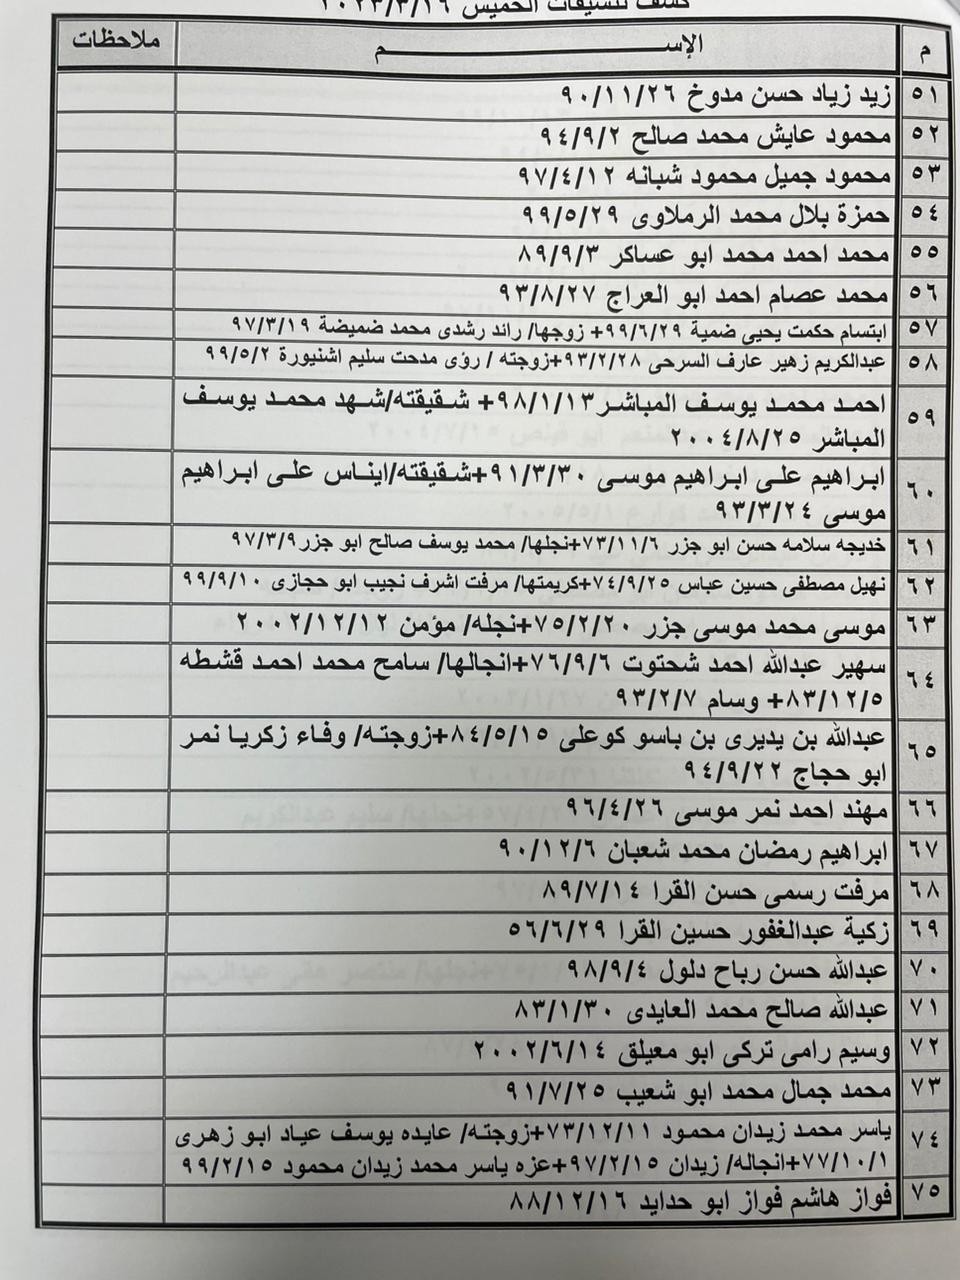 كشف تنسيقات الخميس ٢٠٢٣/٣/١٦
م الإســـــــــــم ملاحظات
٥١ زيد زياد حسن مدوخ ٩٠/١١/٢٦
٥٢ محمود عايش محمد صالح ٩٤/٩/٢
٥٣ محمود جميل محمود شبانه ٩٧/٤/١٢
٥٤ حمزة بلال محمد الرملاوى ٩٩/٥/٢٩
٥٥ محمد احمد محمد ابو عساكر ٨٩/٩/٣
٥٦ محمد عصام احمد ابو العراج ٩٣/٨/٢٧
٥٧ ابتسام حكمت يحيى ضمية ٩٩/٦/٢٩+ زوجها/ رائد رشدى محمد ضميضة ٩٧/٣/١٩
٥٨ عبدالكريم زهير عارف السرحى ٩٣/٢/٢٨+زوجته / رؤى مدحت سليم اشنيورة ٩٩/٥/٢
٥٩ احمد محمد يوسف المباشر٩٨/١/١٣+ شقيقته/شهد محمد يوسف
المباشر ٢٠٠٤/٨/٢٥
٦٠ ابراهيم على ابراهيم موسى ٩١/٣/٣٠+شقيقته/ايناس على ابراهيم
موسى ٩٣/٣/٢٤
٦١ خديجه سلامه حسن ابو جزر ٧٣/١١/٦+نجلها/ محمد يوسف صالح ابو جزر٩٧/٣/٩
٦٢ نهيل مصطفى حسين عباس ٧٤/٩/٢٥+كريمتها/ مرفت اشرف نجيب ابو حجازى ٩٩/٩/١٠
٦٣ موسى محمد موسى جزر ٧٥/٢/٢٠+نجله/ مؤمن ٢٠٠٢/١٢/١٢
٦٤ سهير عبدالله احمد شحتوت ٧٦/٩/٦+انجالها/ سامح محمد احمد قشطه
٨٣/١٢/٥+ وسام ٩٣/٢/٧
٦٥ عبدالله بن يديرى بن باسو كوعلى ٨٤/٥/١٥+زوجته/ وفاء زكريا نمر
ابو حجاج ٩٤/٩/٢٢
٦٦ مهند احمد نمر موسى ٩٦/٤/٢٦
٦٧ ابراهيم رمضان محمد شعبان ٩٠/١٢/٦
٦٨ مرفت رسمى حسن القرا ٨٩/٧/١٤
٦٩ زكية عبدالغفور حسين القرا ٥٦/٦/٢٩
٧٠ عبدالله حسن رباح دلول ٩٨/٩/٤
٧١ عبدالله صالح محمد العايدى ٨٣/١/٣٠
٧٢ وسيم رامى تركى ابو معيلق ٢٠٠٢/٦/١٤
٧٣ محمد جمال محمد ابو شعيب ٩١/٧/٢٥
٧٤ ياسر محمد زيدان محمود ٧٣/١٢/١١+زوجته/ عايده يوسف عياد ابو زهرى
٧٧/١٠/١+انجاله/ زيدان ٩٧/٢/١٥+عزه ياسر محمد زيدان محمود ٩٩/٢/١٥
٧٥ فواز هاشم فواز ابو حدايد ٨٨/١٢/١٦